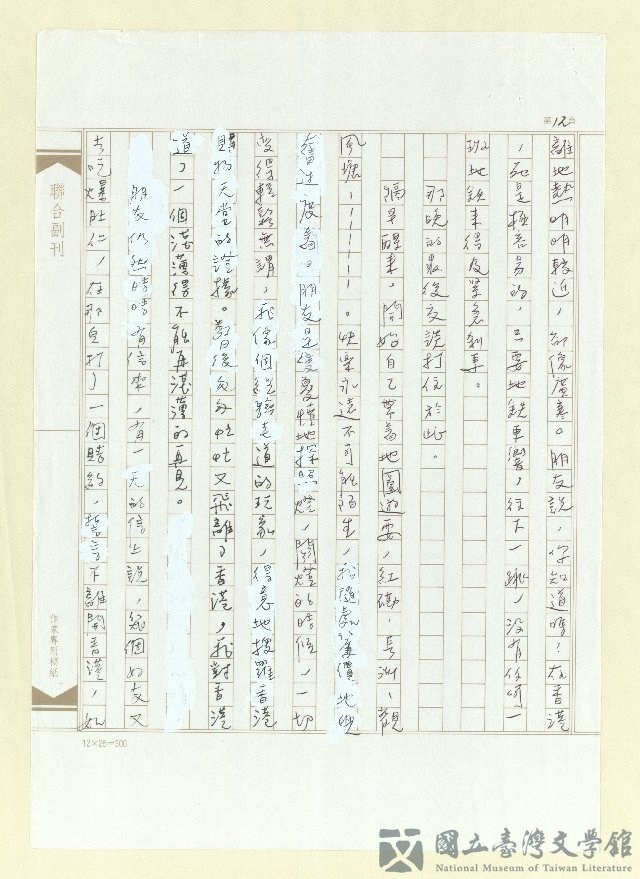 第12頁
離地熱呐呐較近，卻像廣寒。朋友說，你知道嗎？在香港
，死是極容易的，只要地鐵車響，往下一跳，沒有任何一
班地鐵來得及緊急剎車。
那晚的最後交談打住於此。
隔早醒來，開始自己票為地圖遊耍，紅磡，長洲，觀
風塘，。快樂永遠不可能陌生，我隨處廉價地
奮迅度為。朋友是慢憂懂地探照燈，開燈的時候，一切
變得輕鬆無謂，我像個經驗老道的玩家，得意地搜羅香港
購物天堂的證據。數日後匆匆忙忙又飛離了香港，我對香港
道了一個淡薄得不能再淡薄的再見。
朋友仍然時時有信來，有一天的信上說，幾個好友又
去吃爆肚仁，在那兒打了一個賭約，誓言下離開香港，如
聯合副刊
作家專用稿紙
12×25=300
國立臺灣文學館
National Museum of Taiwan Literature